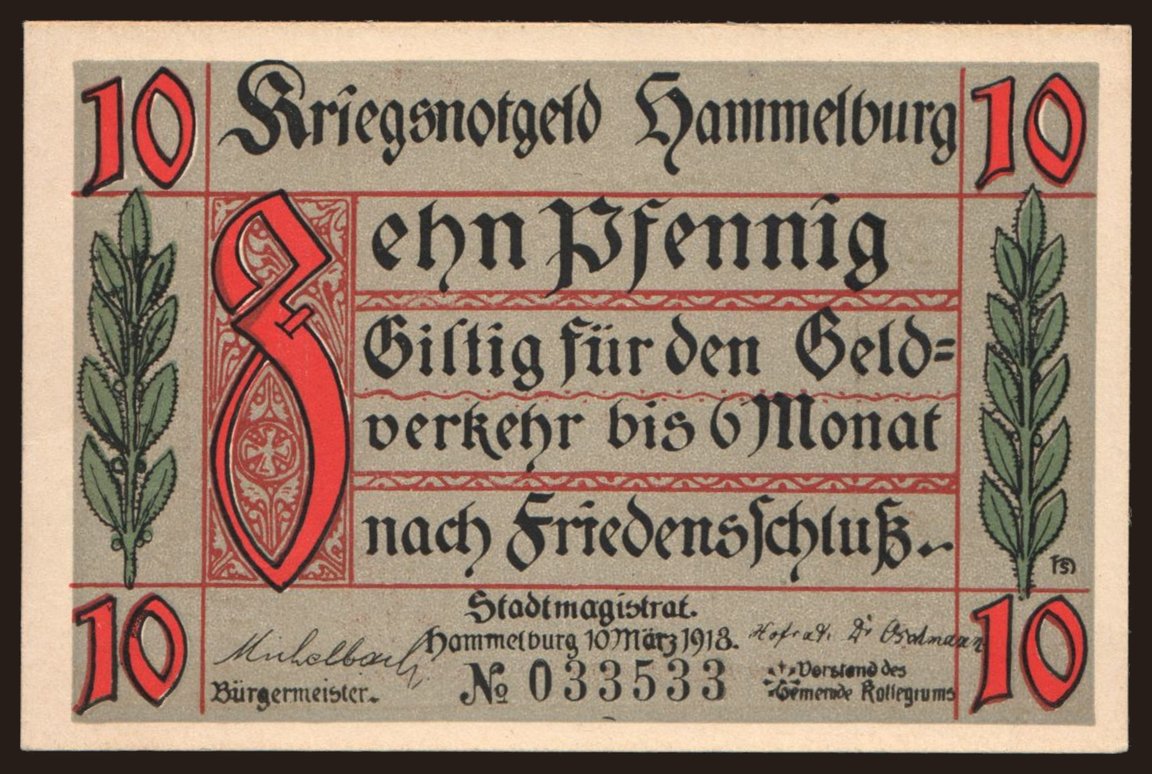 10 Kriegsnotgeld Hammelburg 10
Zehn Pfennig
Giltig für den Geld=
verkehr bis 6 Monat
nach Friedensschluß.
FS
10 Stadtmagistrat. 10
Hammelburg 10 März 1918.
Michelbach Hofrat. Dr
Bürgermeister. No 033533 Vorstand des
Gemeinde Kollegiums